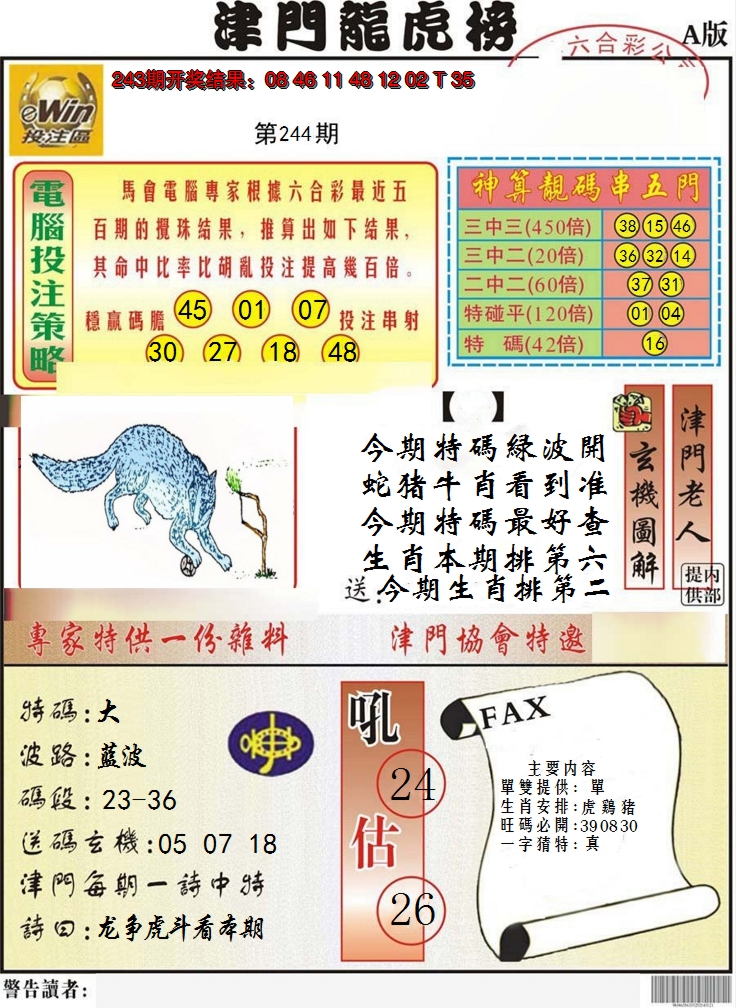 津門龍虎榜
A版
六合彩公
243期开奖结果：08 46 11 48 12 02 T 35
eWin
投注區
第244期
電腦投注策略
馬會電腦專家根據六合彩最近五
百期的攪珠结果，推算出如下结果，
其命中比率比胡亂投注提高幾百倍。
穩贏碼膽 45 01 07 投注串射
30 27 18 48
神算靚碼串五門
三中三(450倍) 38 15 46
三中二(20倍) 36 32 14
二中二(60倍) 37 31
特碰平(120倍) 01 04
特 碼(42倍) 16
【 】
今期特碼緑波開
蛇猪牛肖看到准
今期特碼最好查
生肖本期排第六
送:今期生肖排第二
玄機圖解
津門老人
内部提供
專家特供一份雜料
津門協會特邀
特碼:大
波路:藍波
碼段:23-36
送碼玄機:05 07 18
津門每期一詩中特
詩曰:龙争虎斗看本期
吼
24
估
26
FAX
主要内容
單雙提供：單
生肖安排:虎鷄豬
旺碼必開:390830
一字猜特:真
警告讀者: